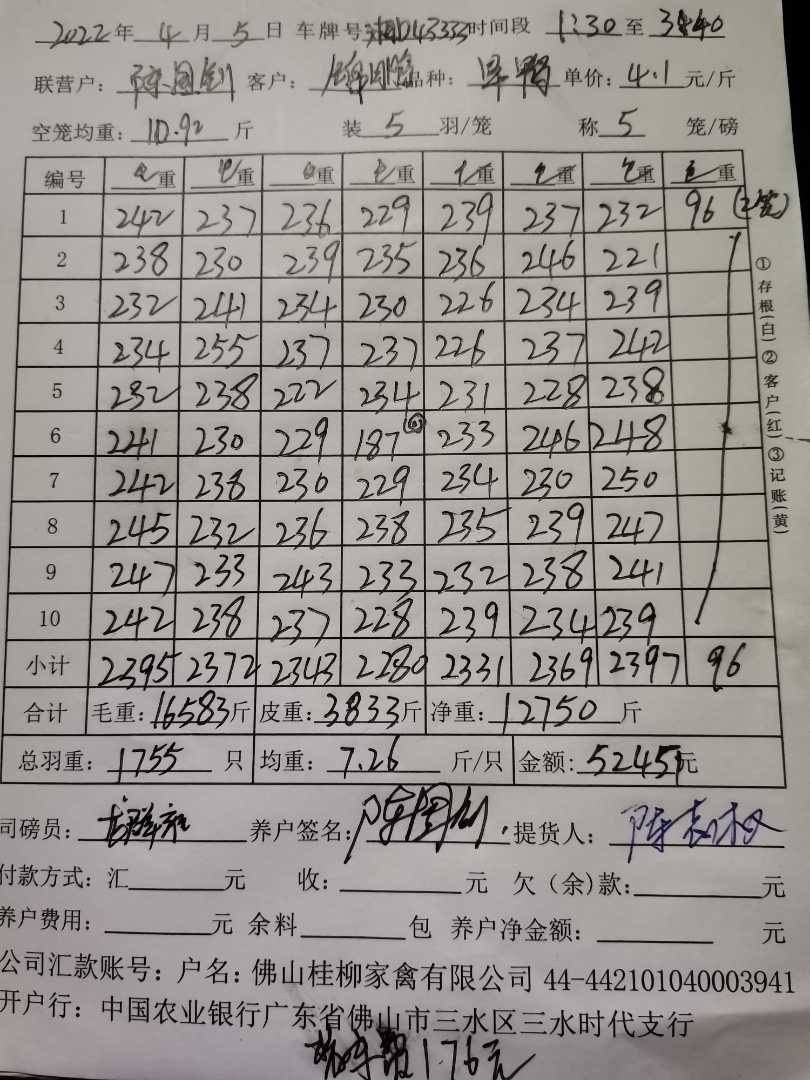 2022年 4 月 5 日 车牌号 D43333 时间段 1:30 至 3:40
联营户: 陈国钊 客户: 品种: 单价: 4.1 元/斤
空笼均重: 10.92 斤 装 5 羽/笼 称 5 笼/磅
编号 毛重 毛重 毛重 毛重 毛重 毛重 毛重 毛重
1 242 237 236 229 239 237 232 96 (2笼)
2 238 230 239 235 236 246 221
3 232 241 234 230 226 234 239
4 234 255 237 237 226 237 242
5 232 238 222 234 231 228 238
6 241 230 229 187 233 246 248
7 242 238 230 229 234 230 250
8 245 232 236 238 235 239 247
9 247 233 243 233 232 238 241
10 242 238 237 228 239 234 239
小计 2395 2372 2343 2280 2331 2369 2397 96
合计 毛重: 16583 斤 皮重: 3833 斤 净重: 12750 斤
总羽重: 1755 只 均重: 7.26 斤/只 金额: 52451 元
①存根(白)②客户(红)③记账(黄)
司磅员: 养户签名: 陈国钊 提货人: 陈志权
付款方式: 汇 元 收: 元 欠(余)款: 元
养户费用: 元 余料 包 养户净金额: 元
公司汇款账号: 户名: 佛山桂柳家禽有限公司 44-442101040003941
开户行: 中国农业银行广东省佛山市三水区三水时代支行
176元